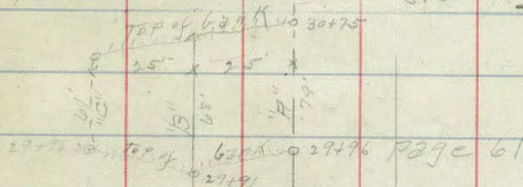 Top of bank 30+75
25' 25'
"C" 61' "B" 68' "A" 79'
29+96 Top of bank 29+96 page 61
29+91